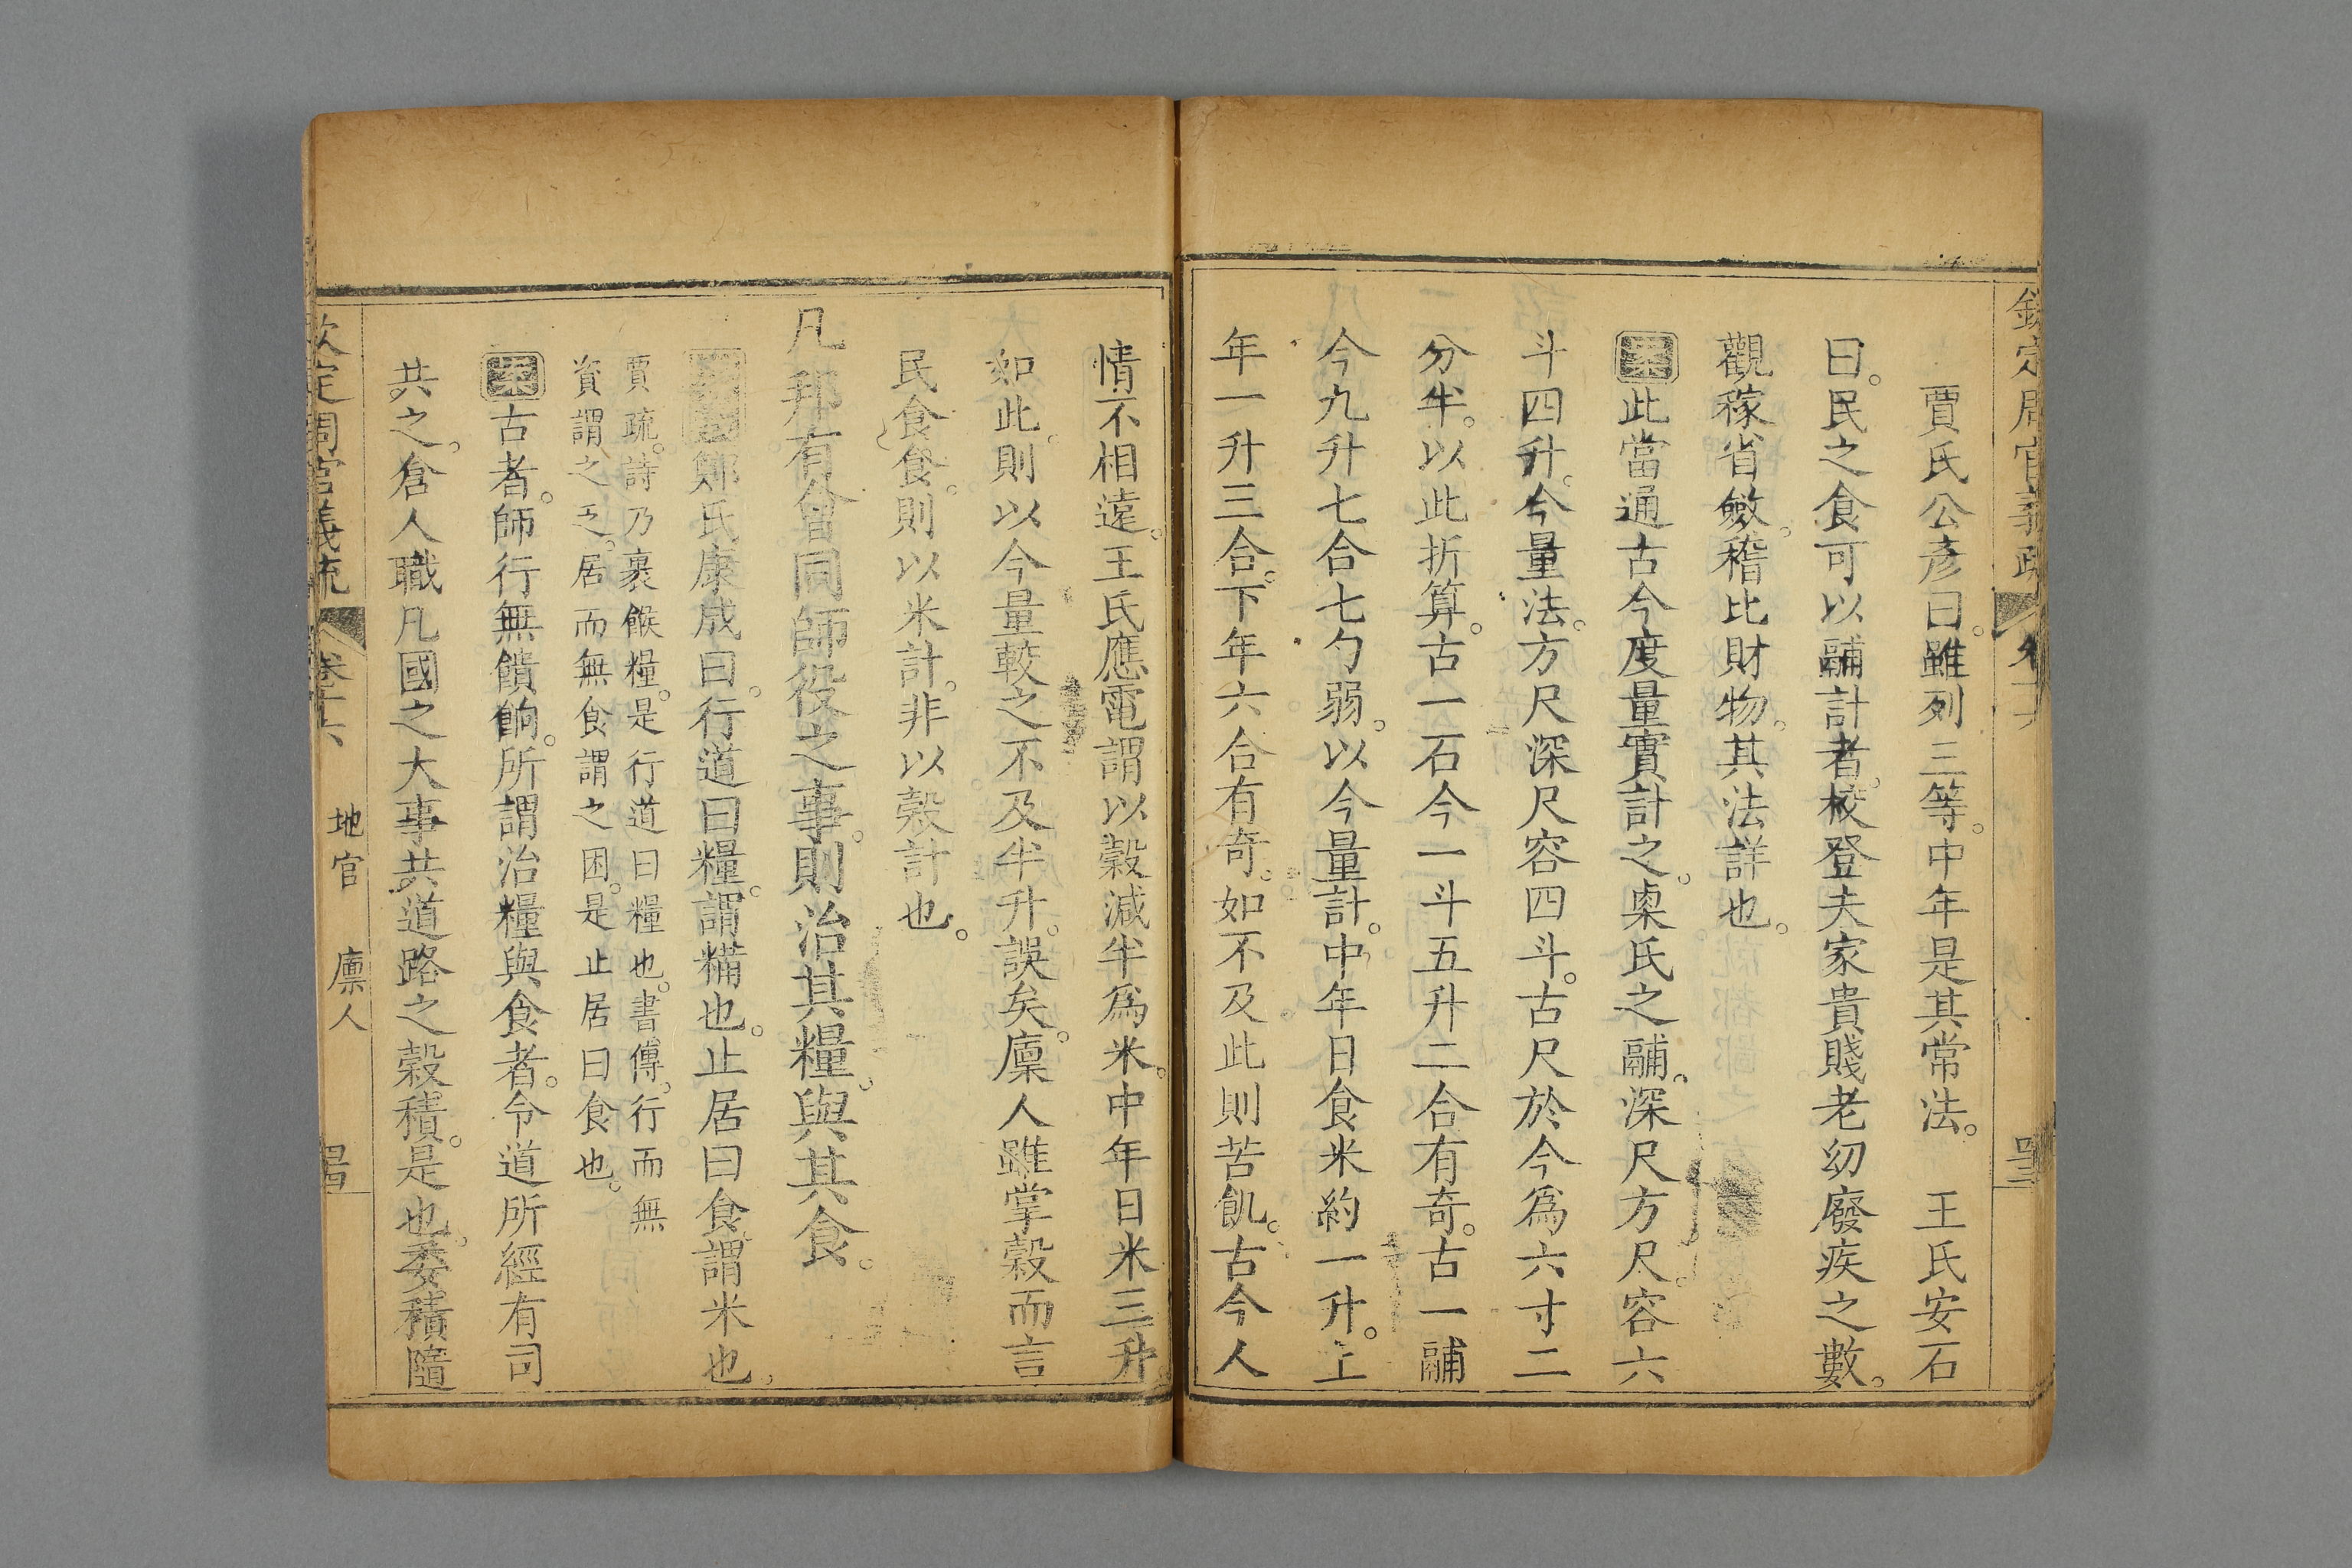 欽定周官義疏 卷十六
賈氏公彥曰。雖列三等。中年是其常法。 王氏安石
曰。民之食可以鬴計者。校登夫家貴賤老幼廢疾之數。
觀稼省斂。稽比財物。其法詳也。
案此當通古今度量實計之。㮚氏之鬴。深尺方尺。容六
斗四升。今量法。方尺深尺容四斗。古尺於今爲六寸二
分半。以此折算。古一石今一斗五升二合有奇。古一鬴
今九升七合七勺弱。以今量計。中年日食米約一升。上
年一升三合。下年六合有奇。如不及此則苦飢。古今人
情不相遠。王氏應電謂以穀減半爲米。中年日米三升。
如此。則以今量較之不及半升。誤矣。廩人雖掌穀而言
民食。食。則以米計。非以穀計也。
凡邦有會同師役之事。則治其糧。與其食。
鄭氏康成曰。行道曰糧。謂糒也。止居曰食。謂米也。
賈疏。詩乃裹餱糧。是行道曰糧也。書傳。行而無
資謂之乏。居而無食謂之困。是止居曰食也。
案古者。師行無饋餉。所謂治糧與食者。令道所經有司
共之。倉人職凡國之大事共道路之穀積。是也。委積隨
欽定周官義疏 卷十六 地官 廩人